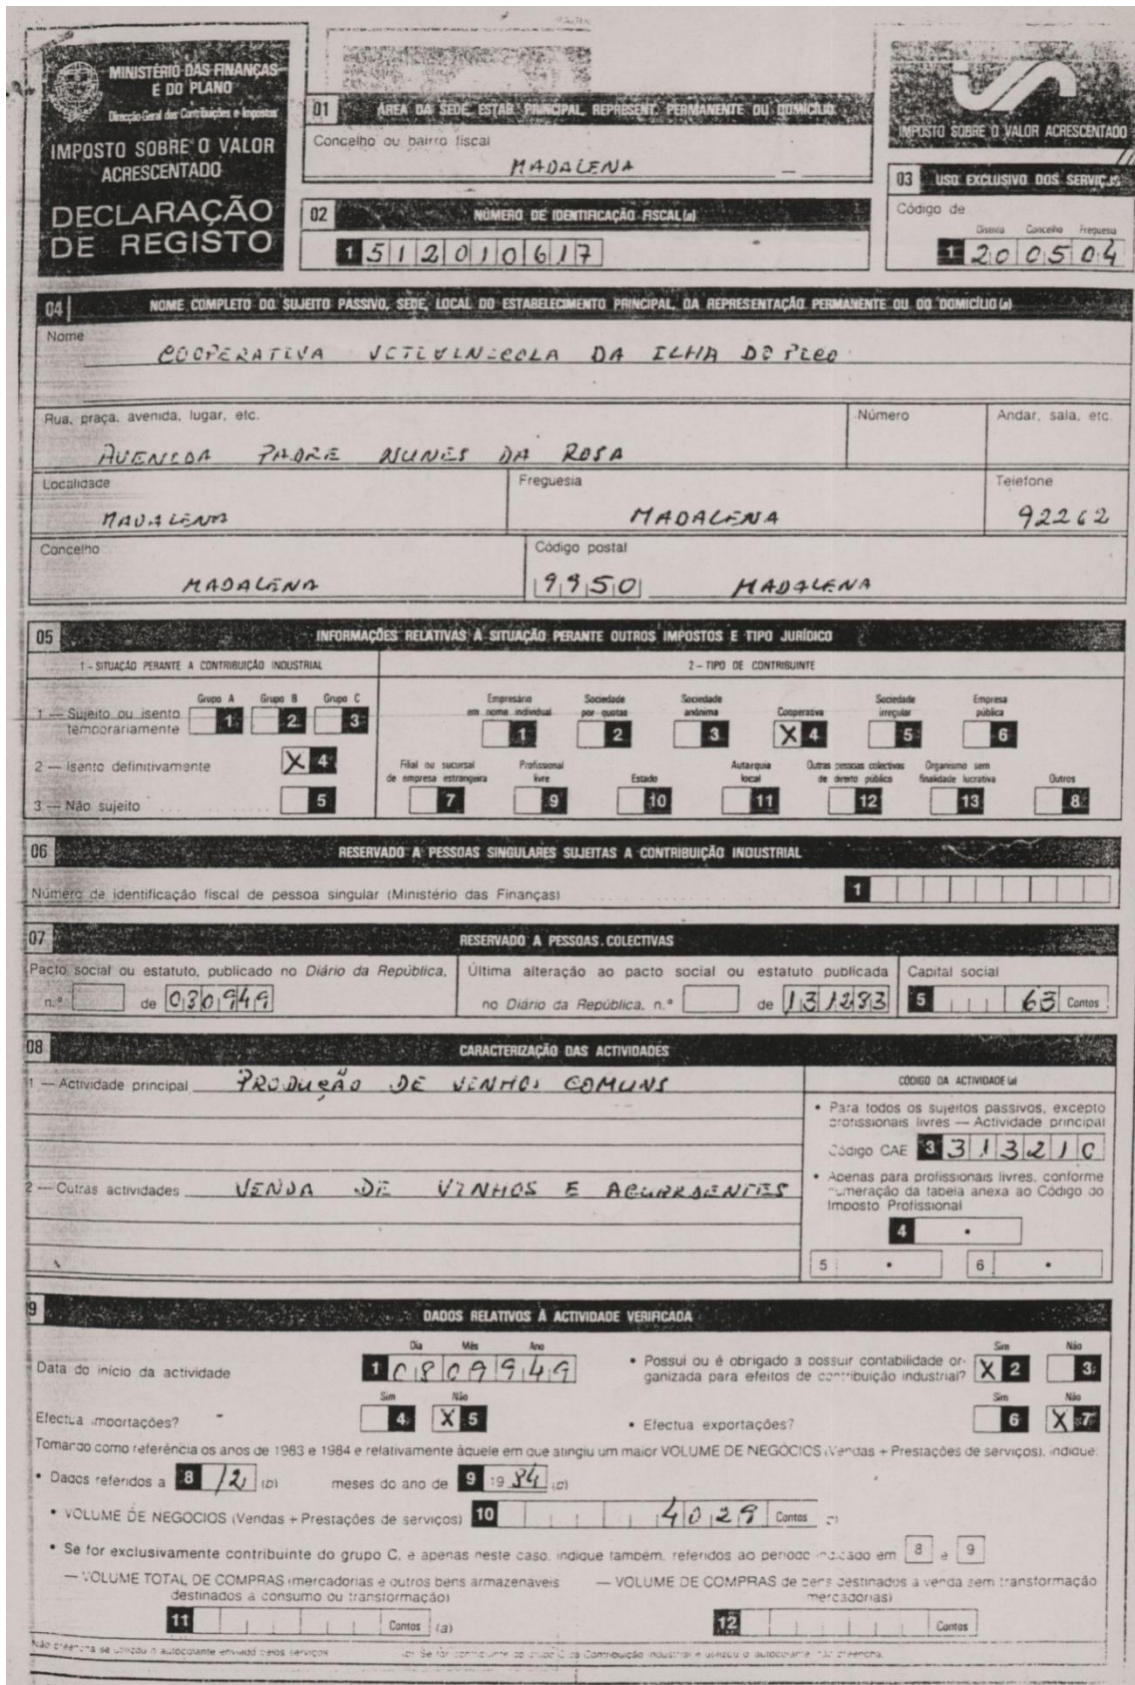 MINISTÉRIO DAS FINANÇAS
E DO PLANO
Direcção-Geral das Contribuições e Impostos
IMPOSTO SOBRE O VALOR
ACRESCENTADO
DECLARAÇÃO
DE REGISTO
01 ÁREA DA SEDE, ESTAB. PRINCIPAL, REPRESENT. PERMANENTE OU DOMICÍLIO
Concelho ou bairro fiscal
MADALENA
02 NÚMERO DE IDENTIFICAÇÃO FISCAL (a)
1 512010617
IMPOSTO SOBRE O VALOR ACRESCENTADO
03 USO EXCLUSIVO DOS SERVIÇOS
Código de
Distrito Concelho Freguesia
1 200504
04 NOME COMPLETO DO SUJEITO PASSIVO, SEDE, LOCAL DO ESTABELECIMENTO PRINCIPAL, DA REPRESENTAÇÃO PERMANENTE OU DO DOMICÍLIO (a)
Nome
COOPERATIVA VITIVINICOLA DA ILHA DO PICO
Rua, praça, avenida, lugar, etc. Número Andar, sala, etc.
AVENIDA PADRE NUNES DA ROSA
Localidade Freguesia Telefone
MADALENA MADALENA 92262
Concelho Código postal
MADALENA 9950 MADALENA
05 INFORMAÇÕES RELATIVAS À SITUAÇÃO PERANTE OUTROS IMPOSTOS E TIPO JURÍDICO
1 - SITUAÇÃO PERANTE A CONTRIBUIÇÃO INDUSTRIAL 2 - TIPO DE CONTRIBUINTE
Grupo A Grupo B Grupo C
1 — Sujeito ou isento temporariamente 1 2 3
2 — Isento definitivamente X 4
3 — Não sujeito 5
Empresário em nome individual 1 Sociedade por quotas 2 Sociedade anónima 3 Cooperativa X 4 Sociedade irregular 5 Empresa pública 6
Filial ou sucursal de empresa estrangeira 7 Profissional livre 9 Estado 10 Autarquia local 11 Outras pessoas colectivas de direito público 12 Organismo sem finalidade lucrativa 13 Outros 8
06 RESERVADO A PESSOAS SINGULARES SUJEITAS A CONTRIBUIÇÃO INDUSTRIAL
Número de identificação fiscal de pessoa singular (Ministério das Finanças) 1
07 RESERVADO A PESSOAS COLECTIVAS
Pacto social ou estatuto, publicado no Diário da República,
n.º de 030949
Última alteração ao pacto social ou estatuto publicada
no Diário da República, n.º de 131283
Capital social
5 63 Contos
08 CARACTERIZAÇÃO DAS ACTIVIDADES
1 — Actividade principal PRODUÇÃO DE VINHOS COMUNS
2 — Outras actividades VENDA DE VINHOS E AGUARDENTES
CÓDIGO DA ACTIVIDADE (a)
• Para todos os sujeitos passivos, excepto
profissionais livres — Actividade principal
Código CAE 3 313210
• Apenas para profissionais livres, conforme
numeração da tabela anexa ao Código do
Imposto Profissional
4
5 6
9 DADOS RELATIVOS À ACTIVIDADE VERIFICADA
Dia Mês Ano
Data do início da actividade 1 0809949
• Possui ou é obrigado a possuir contabilidade or-
ganizada para efeitos de contribuição industrial? Sim X 2 Não 3
Efectua importações? Sim 4 Não X 5
• Efectua exportações? Sim 6 Não X 7
Tomando como referência os anos de 1983 e 1984 e relativamente àquele em que atingiu um maior VOLUME DE NEGÓCIOS (Vendas + Prestações de serviços), indique:
• Dados referidos a 8 12 (b) meses do ano de 9 1984 (c)
• VOLUME DE NEGÓCIOS (Vendas + Prestações de serviços) 10 4029 Contos
• Se for exclusivamente contribuinte do grupo C, e apenas neste caso, indique também, referidos ao período indicado em 8 e 9
— VOLUME TOTAL DE COMPRAS (mercadorias e outros bens armazenáveis
destinados a consumo ou transformação)
11 Contos (a)
— VOLUME DE COMPRAS de bens destinados a venda sem transformação
mercadorias)
12 Contos
Não preencha se utilizou o autocolante enviado pelos serviços